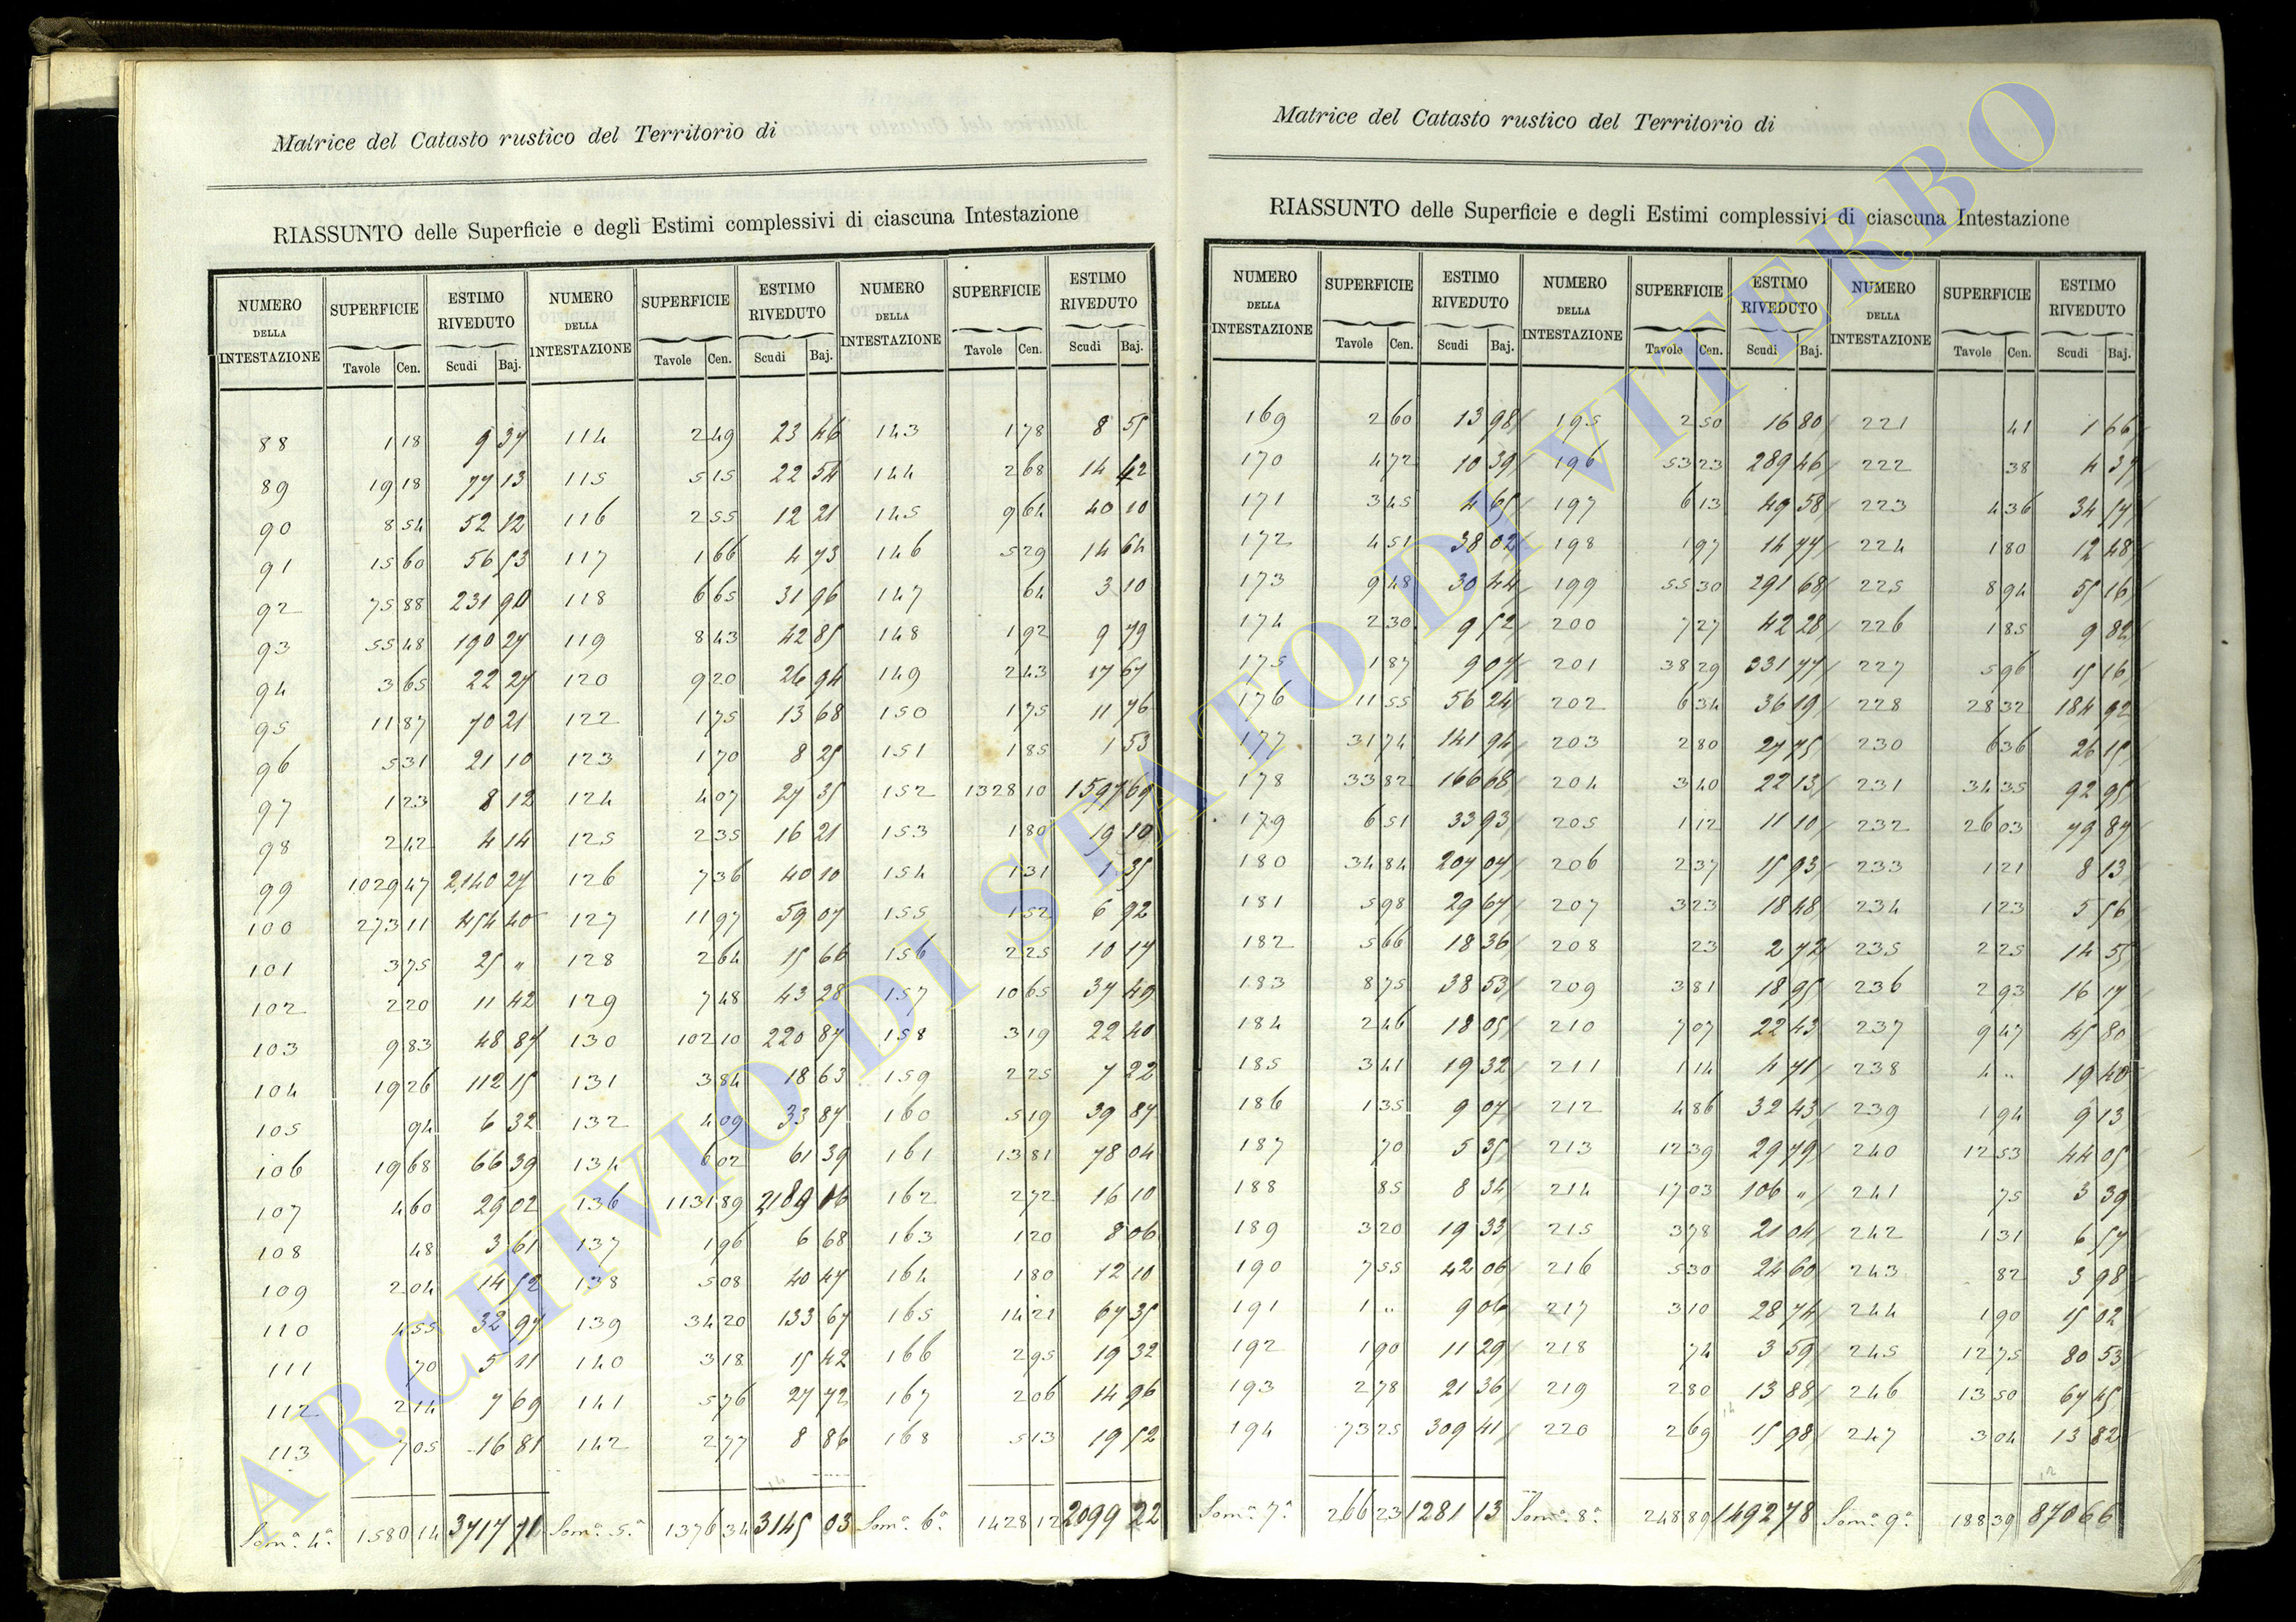 Matrice del Catasto rustico del Territorio di
RIASSUNTO delle Superficie e degli Estimi complessivi di ciascuna Intestazione
NUMERO DELLA INTESTAZIONE SUPERFICIE ESTIMO RIVEDUTO NUMERO DELLA INTESTAZIONE SUPERFICIE ESTIMO RIVEDUTO NUMERO DELLA INTESTAZIONE SUPERFICIE ESTIMO RIVEDUTO
Tavole Cen. Scudi Baj. Tavole Cen. Scudi Baj. Tavole Cen. Scudi Baj.
88 1 18 9 37 114 2 49 23 46 143 1 78 8 55
89 19 18 77 13 115 5 15 22 54 144 2 68 14 42
90 8 54 52 12 116 2 55 12 21 145 9 64 40 10
91 15 60 56 53 117 1 66 4 73 146 5 29 14 64
92 75 88 231 90 118 6 65 31 96 147 64 3 10
93 55 48 190 27 119 8 43 42 85 148 1 92 9 79
94 3 65 22 27 120 9 20 26 94 149 2 43 17 67
95 11 87 70 21 122 1 75 13 68 150 1 75 11 76
96 5 31 21 10 123 1 70 8 25 151 1 85 1 53
97 1 23 8 12 124 4 07 27 35 152 1328 10 1597 69
98 2 42 4 14 125 2 35 16 21 153 1 80 19 10
99 1029 47 2,140 27 126 7 36 40 10 154 1 31 1 35
100 273 11 454 40 127 11 97 59 07 155 1 52 6 92
101 3 75 25 „ 128 2 64 15 66 156 2 25 10 17
102 2 20 11 42 129 7 48 43 28 157 10 65 37 49
103 9 83 48 87 130 102 10 220 87 158 3 19 22 40
104 19 26 112 15 131 3 84 18 63 159 2 25 7 22
105 94 6 32 132 4 09 33 87 160 5 19 39 87
106 19 68 66 39 134 6 02 61 39 161 13 81 78 04
107 4 60 29 02 136 1131 89 2189 06 162 2 72 16 10
108 48 3 61 137 1 96 6 68 163 1 20 8 06
109 2 04 14 52 138 5 08 40 47 164 1 80 12 10
110 4 55 32 97 139 34 20 133 67 165 14 21 67 35
111 70 5 11 140 3 18 15 42 166 2 95 19 32
112 2 14 7 69 141 5 76 27 72 167 2 06 14 96
113 7 05 16 81 142 2 77 8 86 168 5 13 19 52
Som.a 4.a 1580 14 3717 71 Som.a 5.a 1376 34 3145 03 Som.a 6.a 1428 12 2099 22
Matrice del Catasto rustico del Territorio di
RIASSUNTO delle Superficie e degli Estimi complessivi di ciascuna Intestazione
NUMERO DELLA INTESTAZIONE SUPERFICIE ESTIMO RIVEDUTO NUMERO DELLA INTESTAZIONE SUPERFICIE ESTIMO RIVEDUTO NUMERO DELLA INTESTAZIONE SUPERFICIE ESTIMO RIVEDUTO
Tavole Cen. Scudi Baj. Tavole Cen. Scudi Baj. Tavole Cen. Scudi Baj.
169 2 60 13 98 195 2 50 16 80 221 41 1 66
170 4 72 10 39 196 53 23 289 46 222 38 4 37
171 3 45 4 65 197 6 13 49 58 223 4 36 34 57
172 4 51 38 02 198 1 97 14 77 224 1 80 12 48
173 9 48 30 44 199 55 30 291 68 225 8 94 55 16
174 2 30 9 52 200 7 27 42 28 226 1 85 9 82
175 1 87 9 07 201 38 29 331 77 227 5 96 15 16
176 11 55 56 24 202 6 34 36 19 228 28 32 184 92
177 31 74 141 94 203 2 80 27 75 230 6 36 26 15
178 33 82 166 68 204 3 40 22 13 231 34 35 92 95
179 6 51 33 93 205 1 12 11 10 232 26 03 79 87
180 34 84 207 07 206 2 37 15 93 233 1 21 8 13
181 5 98 29 67 207 3 23 18 48 234 1 23 5 56
182 5 66 18 36 208 23 2 72 235 2 25 14 55
183 8 75 38 53 209 3 81 18 95 236 2 93 16 17
184 2 46 18 05 210 7 07 22 43 237 9 47 45 80
185 3 41 19 32 211 1 14 4 71 238 4 „ 19 40
186 1 35 9 07 212 4 86 32 43 239 1 94 9 13
187 70 5 35 213 12 39 29 79 240 12 53 44 05
188 85 8 34 214 17 03 106 „ 241 75 3 39
189 3 20 19 33 215 3 78 21 04 242 1 31 6 57
190 7 55 42 06 216 5 30 24 60 243 82 3 98
191 1 „ 9 06 217 3 10 28 74 244 1 90 15 02
192 1 90 11 29 218 74 3 59 245 12 75 80 53
193 2 78 21 36 219 2 80 13 88 246 13 50 67 45
194 73 25 309 41 220 2 69 15 98 247 3 04 13 82
Som.a 7.a 266 23 1281 13 Som.a 8.a 248 89 1492 78 Som.a 9.a 188 39 870 66
ARCHIVIO DI STATO DI VITERBO